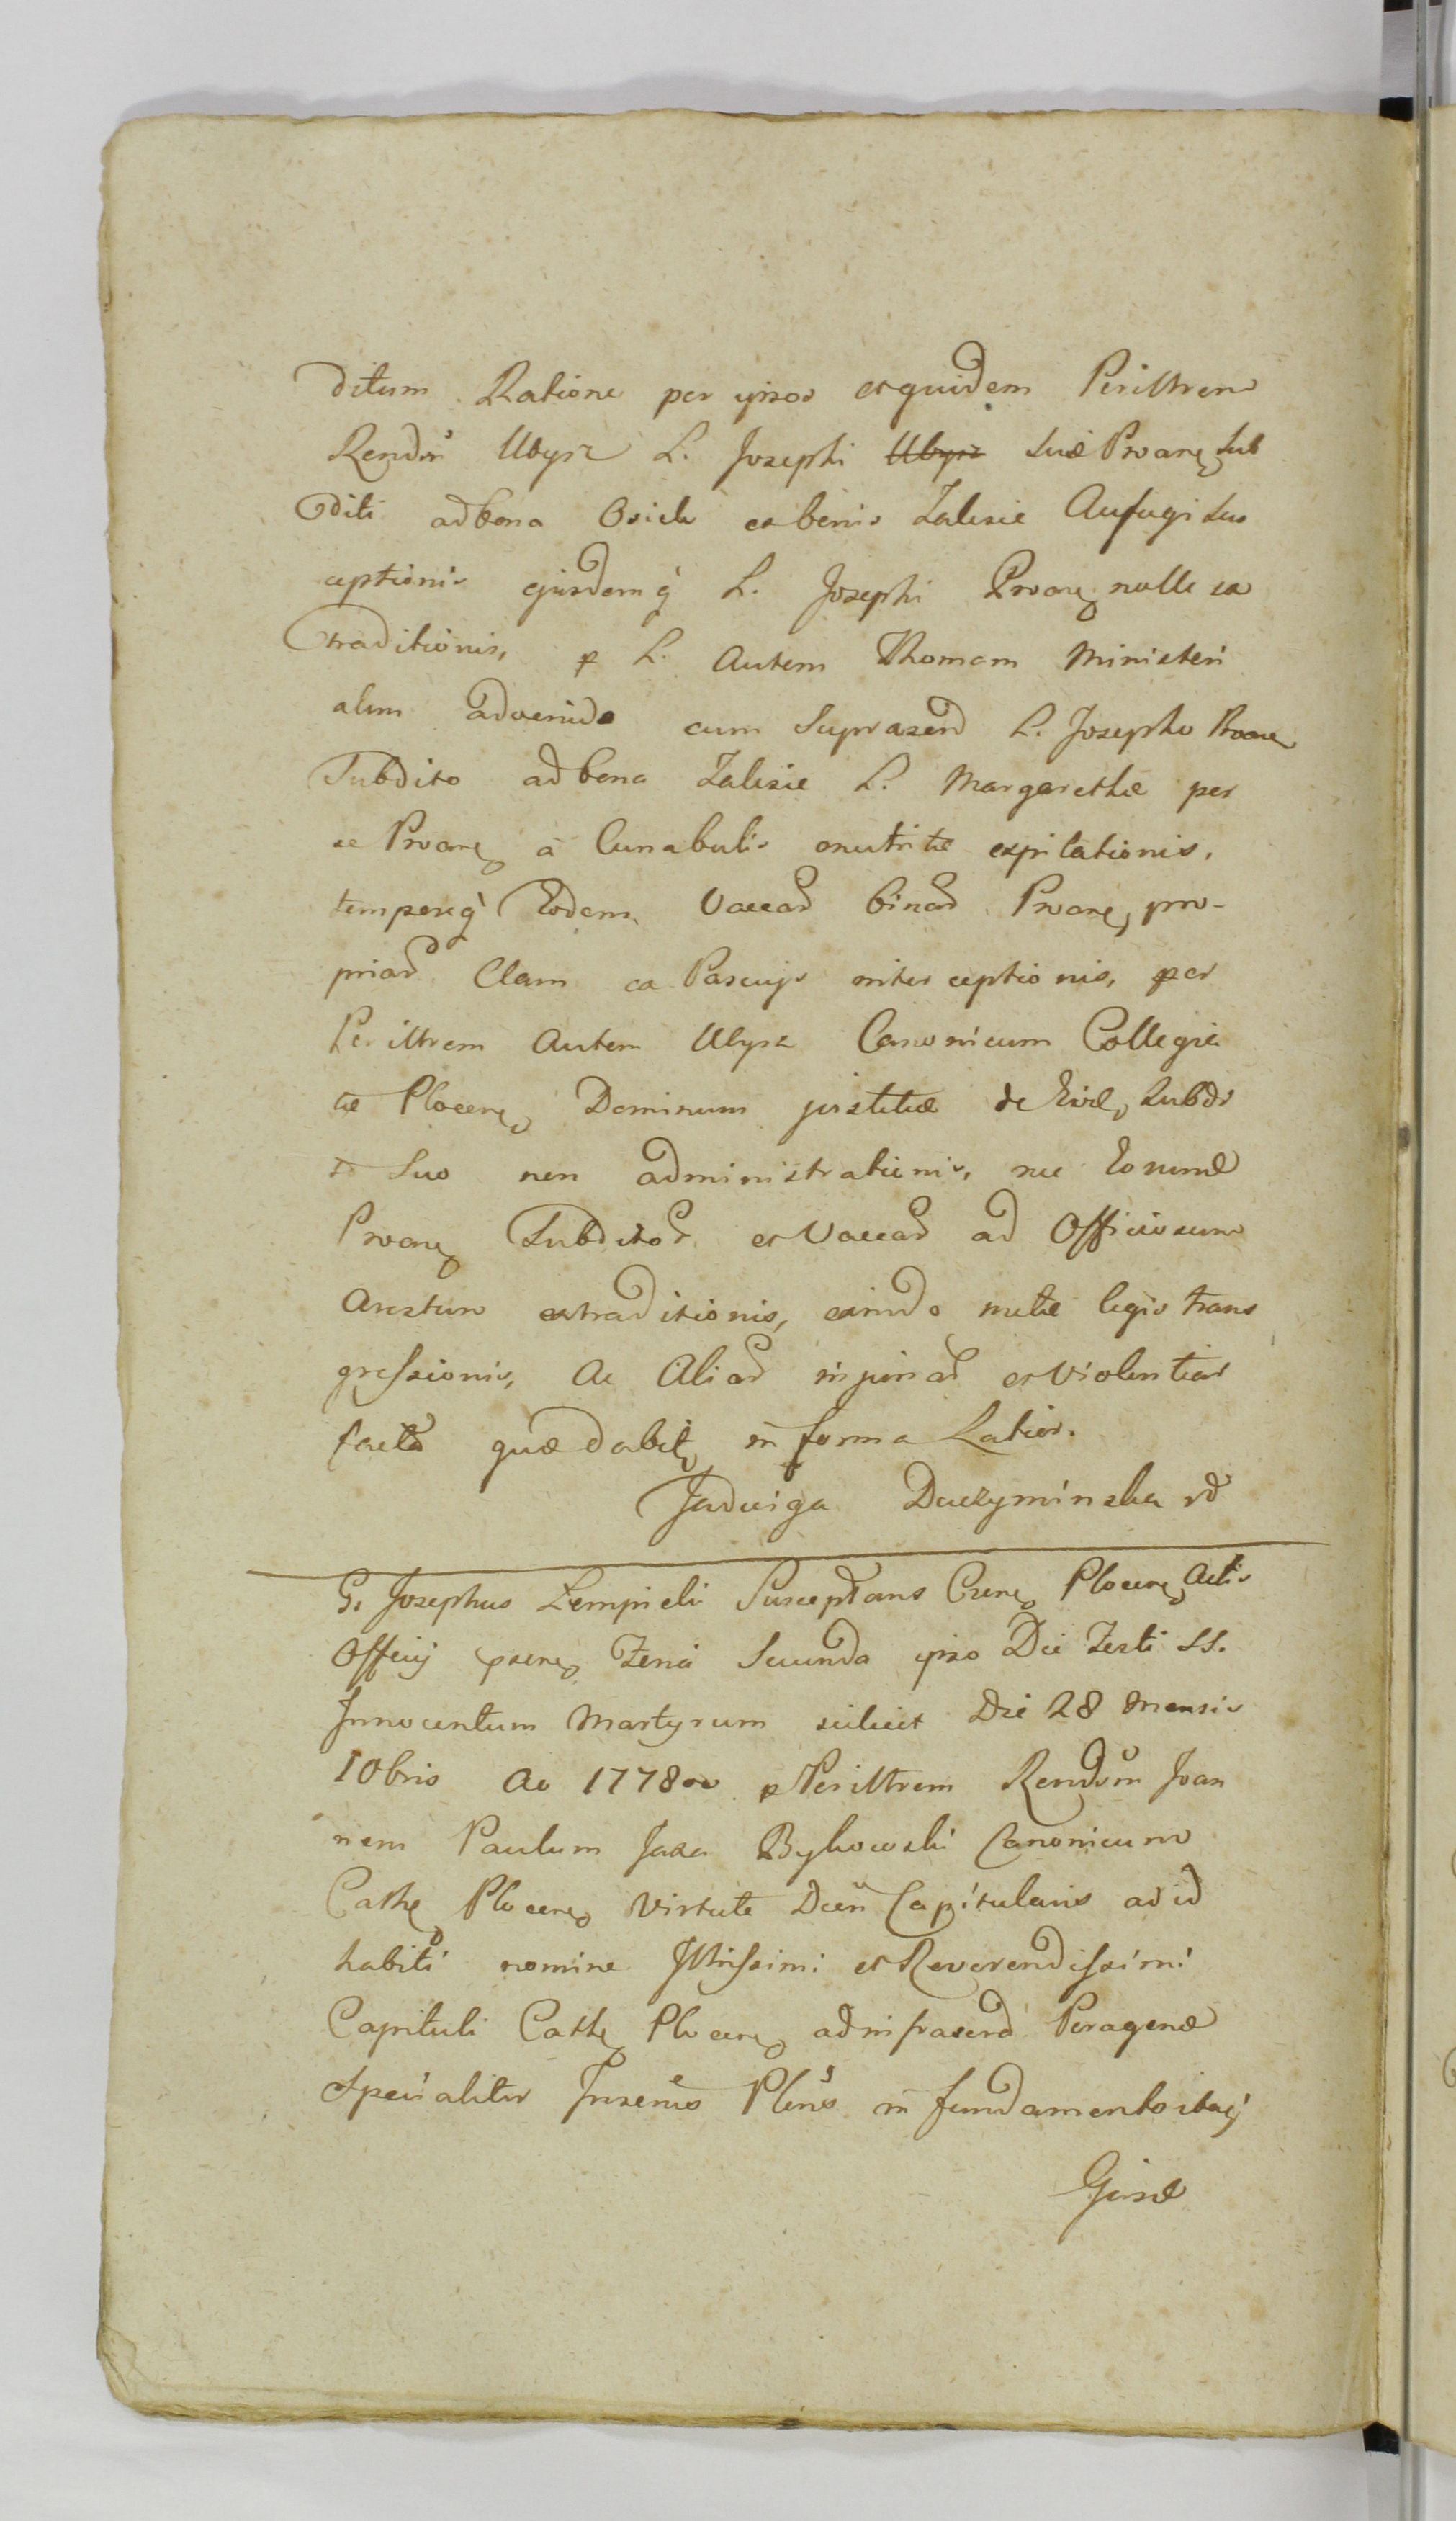 ditum Ratione per ipsos et quidem Perillrem
Rendum Ubysz L. Josephi Ubysz suae Proane sub
diti ad bona Osiek ex benis Zalesie Aufugi sus
ceptionis ejusdemq L. Josephi Proane nolle ex
traditionis, p L. Autem Thomam Ministeri
alem advenido cum Suprascrid L. Josepho Proane
Subdito ad bona Zalesie L. Margarethae per
se Proane a Cunabulis enutritae expilationis,
temporeq Eodem Vaccas binas Proane, pro-
prias Clam ex Pascuys inter ceptionis, per
Perillrem Autem Ubysz Canonicum Collegia
tae Plocens Dominum justitiae de subdi
to Suo non administrationis, nec Eorumd
Proane Subditos et Vaccas ad Officiosum
Arestum extraditionis, exindo legis trans
gressionis, Ac Alias injurias et Violentias
factas quae dabit in forma Latior.
Jadwiga Duczyminska rd
G. Josephus Lempicki Susceptans Cane Plocens Actis
Officy psene Feria Secunda ipso Die Festi SS.
Innocentum Martyrum scilicet Die 28 Mensis
10bris Ao 1778vo p Perillrem Rendum Joan
nem Paulum Jaxa Bykowski Canonicum
Cathe Plocens Virtute Capitularis ad id
habiti nomine Illrissimi et Reverendissimi
Capituli Cathe Plocens ad infrascrid Peragend
Specialiter in fundamento
Ejusd